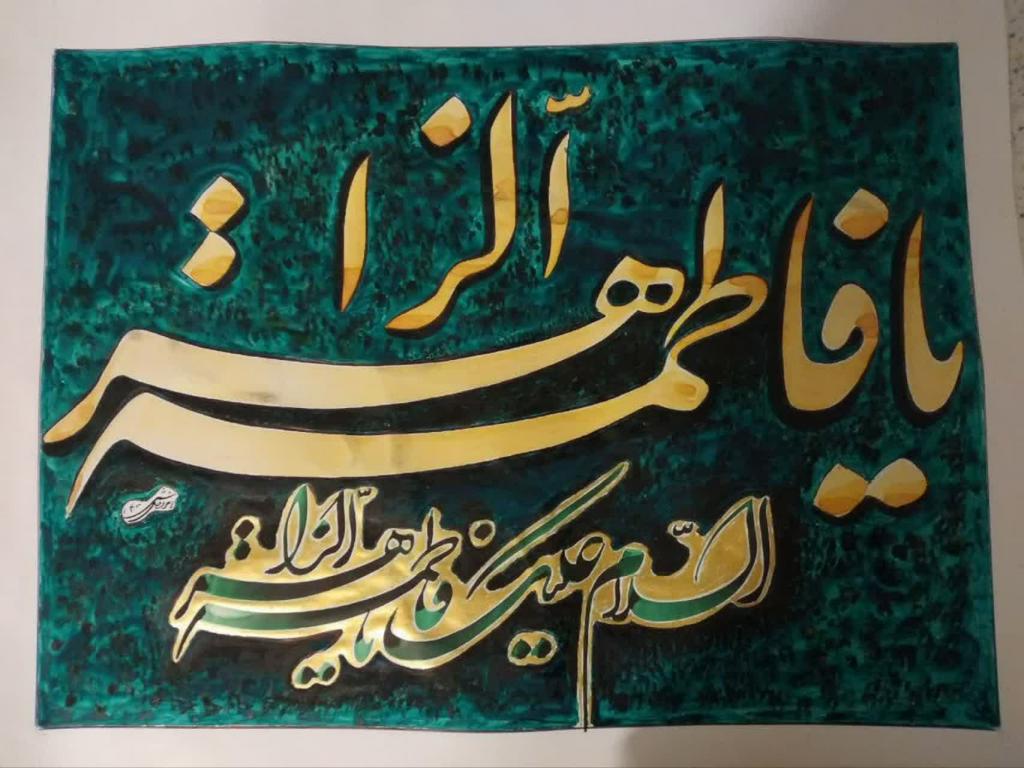 یا فاطمة الزهرا
السلام علیک یا فاطمة الزهرا